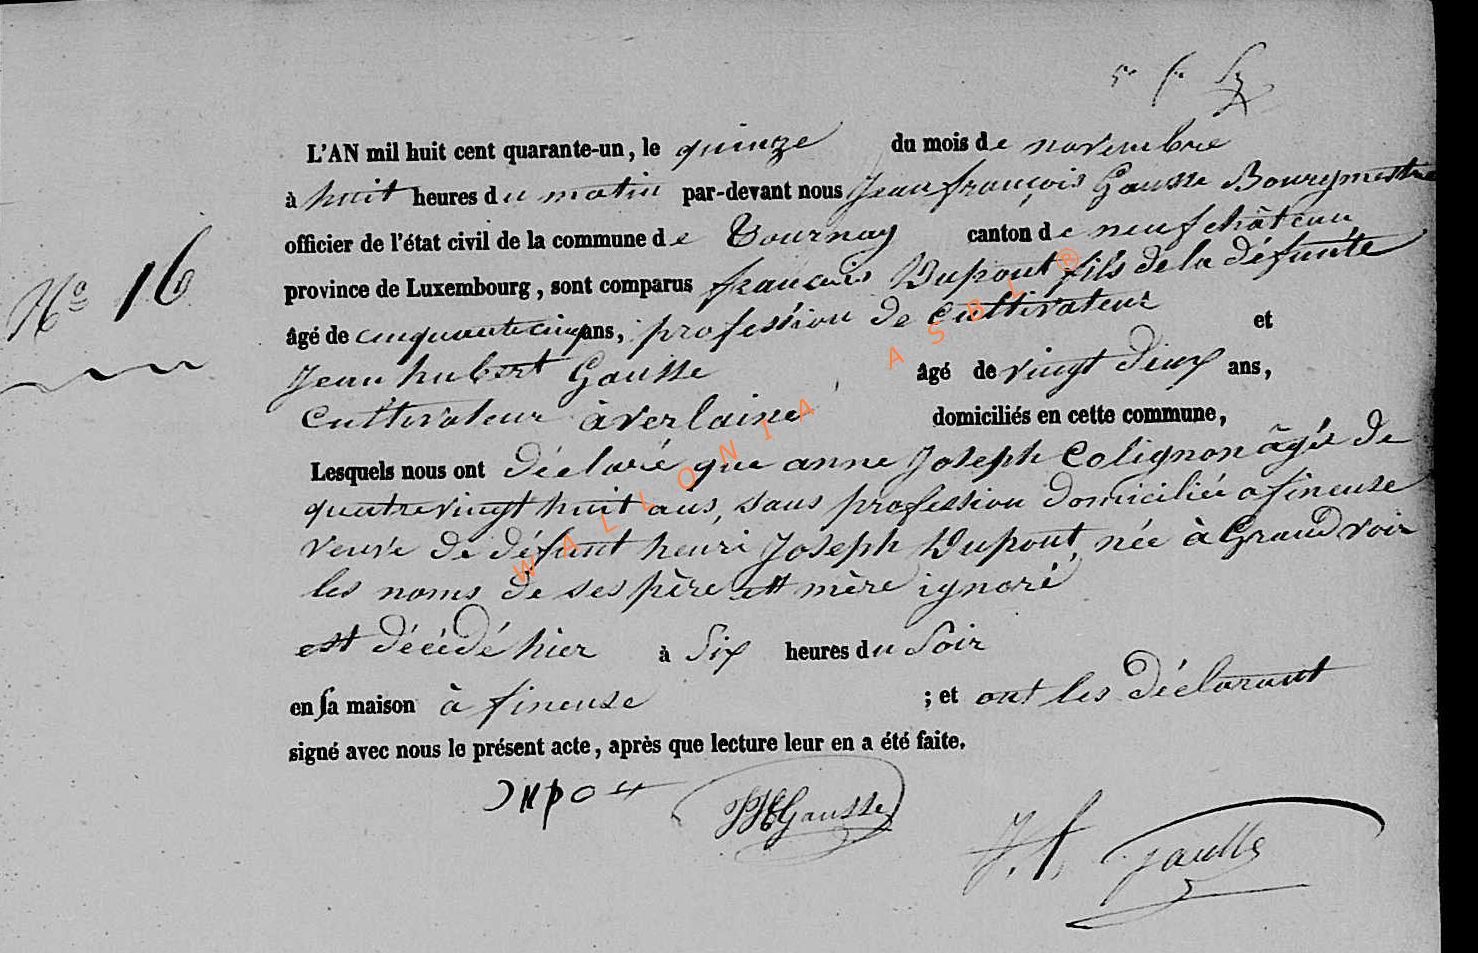 L'AN mil huit cent quarante-un, le quinze du mois de novembre
à huit heures du matin par-devant nous Jean françois Gausse Bourgmestre
officier de l'état civil de la commune de Tournay canton de neufchâteau
N° 16
province de Luxembourg, sont comparus françois Dupont fils de la défunte
âgé de cinquante cinq ans, profession de cultivateur et
Jean hubert Gausse âgé de vingt deux ans,
cultivateur à verlaine domiciliés en cette commune,
Lesquels nous ont déclaré que anne Joseph Colignon âgée de
quatre vingt huit ans, sans profession domiciliée a fineuse
veuve de défunt henri Joseph Dupont, née à Grandvoir
les noms de ses père et mère ignoré
est décédé hier à Six heures du Soir
en sa maison à fineuse ; et ont les déclarant
signé avec nous le présent acte, après que lecture leur en a été faite.
Dupont JHGausse
J. f. Gausse
WALLONIA ASBL ®